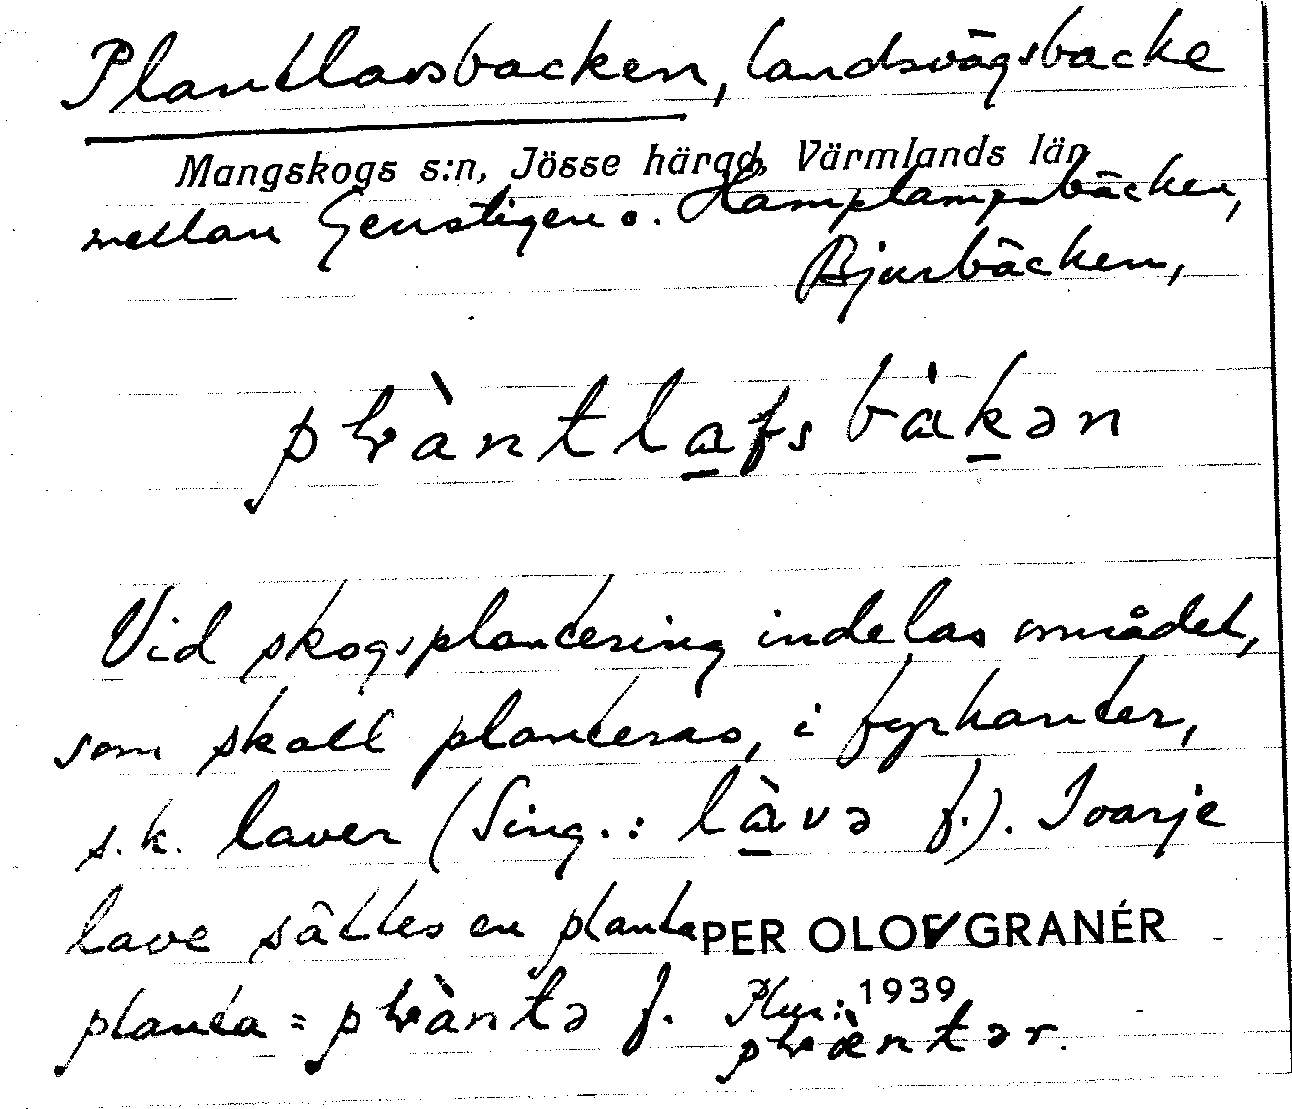 Plantlavsbacken, landsvägsbacke
Mangskogs s:n, Jösse härad, Värmlands län
mellan Genstigen o. Hamplampsbäcken,
Bjurbäcken,
pɽàntlafsbàkən
Vid skogsplantering indelas området,
som skall planteras, i fyrkanter,
s.k. laver (Sing.: làvə f.). I varje
lave sättes en planta
PER OLOF GRANÉR
1939
planta = pɽàntə f. Plur.:
pɽæ̀ntər.